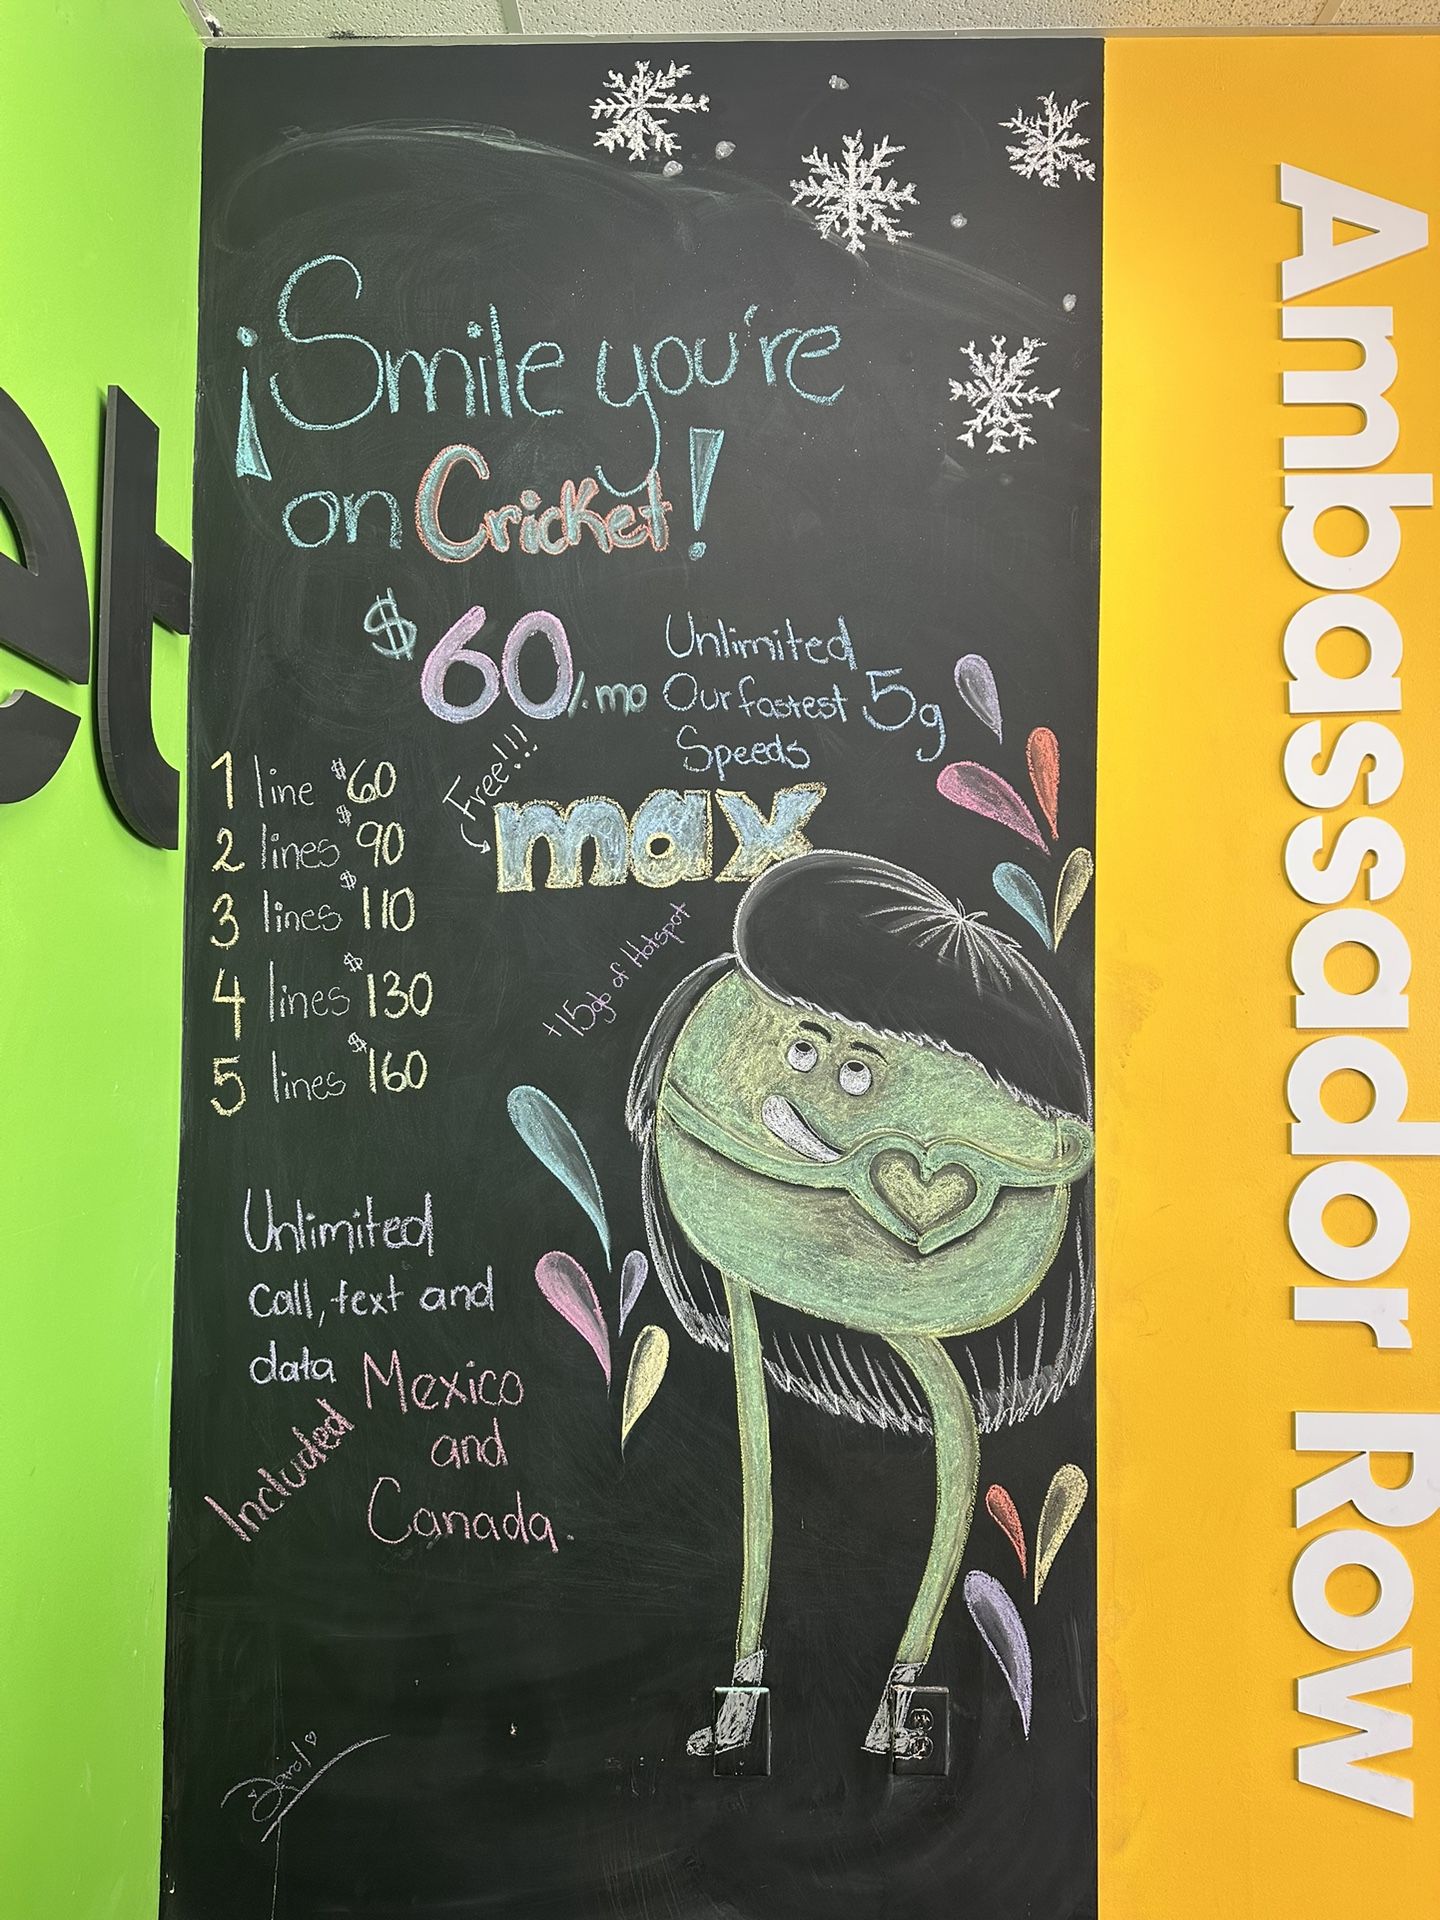 ¡Smile you're
on Cricket!
$60/.mo
Unlimited
Our fastest 5g
Speeds
Free!!!
max
+15gb of Hotspot
1 line $60
2 lines $90
3 lines $110
4 lines $130
5 lines $160
Unlimited
call, text and
data
Included
Mexico
and
Canada.
et
Ambassador Row